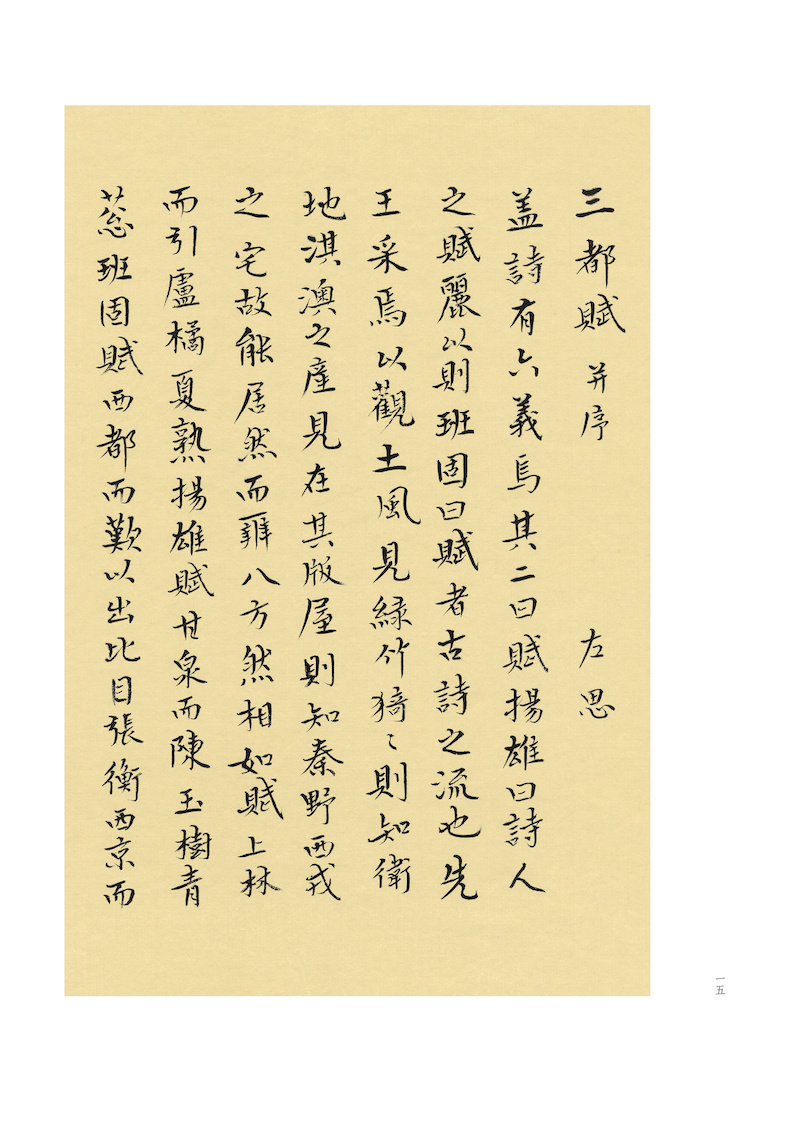 三都賦 并序 左思
盖詩有六義焉其二曰賦揚雄曰詩人
之賦麗以則班固曰賦者古詩之流也先
王采焉以觀土風見緑竹猗〻則知衛
地淇澳之產見在其版屋則知秦野西戎
之宅故能居然而辨八方然相如賦上林
而引盧橘夏熟揚雄賦甘泉而陳玉樹青
葱班固賦西都而歎以出比目張衡西京而
一五